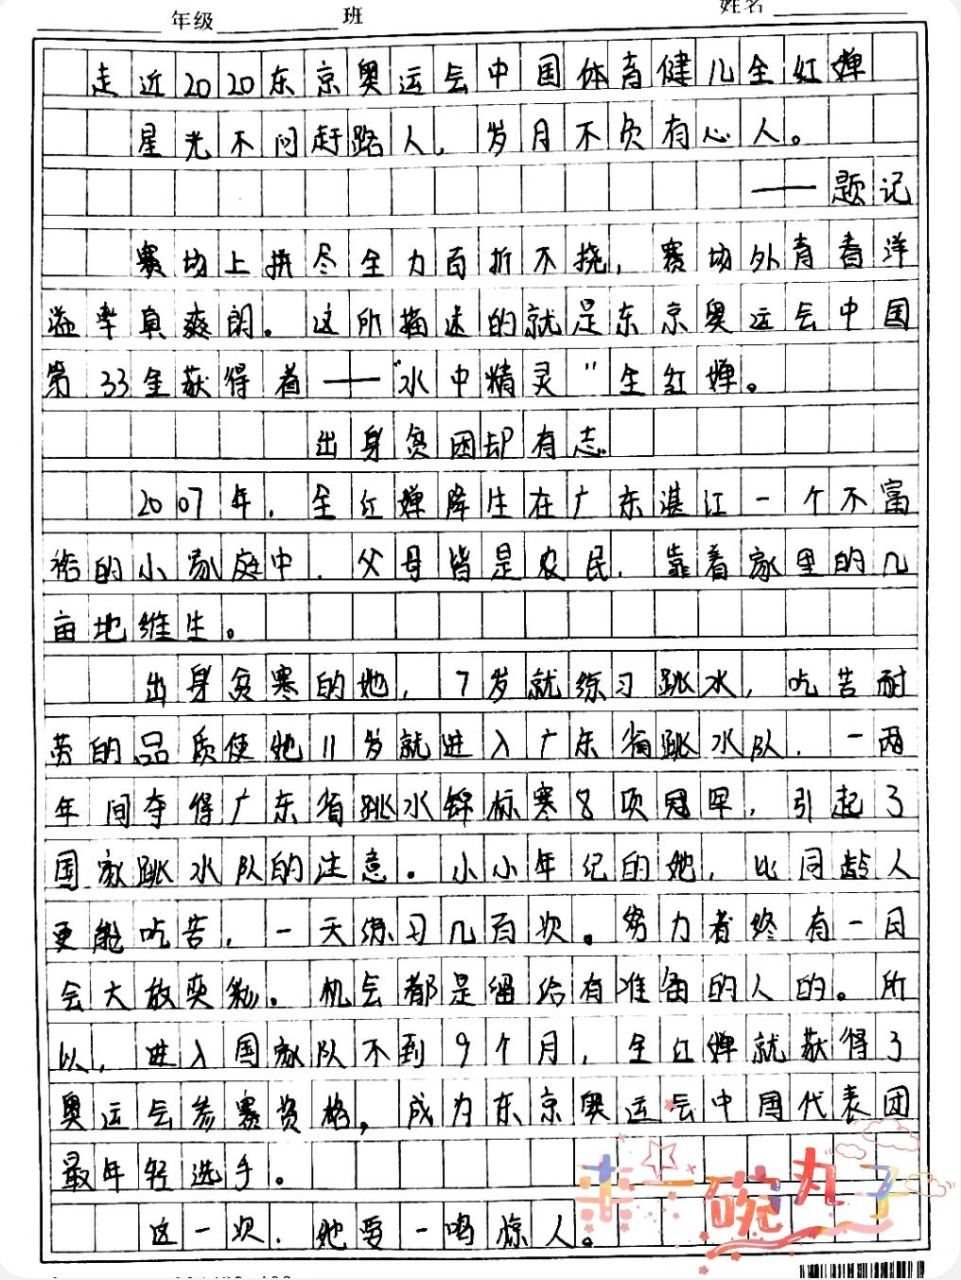 年级 班 姓名
走近2020东京奥运会中国体育健儿全红婵
星光不问赶路人，岁月不负有心人。
——题记
赛场上拼尽全力百折不挠，赛场外青春洋
溢率真爽朗。这所描述的就是东京奥运会中国
第33金获得者——“水中精灵”全红婵。
出身贫困却有志
2007年，全红婵降生在广东湛江一个不富
裕的小家庭中，父母皆是农民，靠着家里的几
亩地维生。
出身贫寒的她，7岁就练习跳水，吃苦耐
劳的品质使她11岁就进入广东省跳水队，一两
年间夺得广东省跳水锦标赛8项冠军，引起了
国家跳水队的注意。小小年纪的她，比同龄人
更能吃苦，一天练习几百次。努力者终有一日
会大放异彩。机会都是留给有准备的人的。所
以，进入国家队不到9个月，全红婵就获得了
奥运会参赛资格，成为东京奥运会中国代表团
最年轻选手。
这一次，她要一鸣惊人。
来一碗丸子